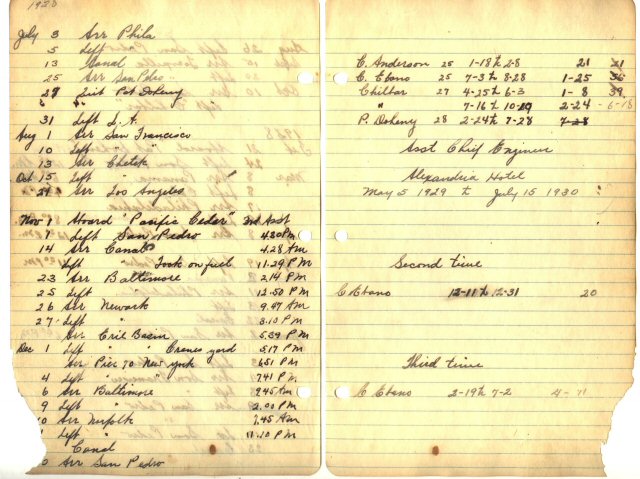 1930
July 3 Arr Phila
5 Left "
13 Canal
25 Arr San Pedro
29 Quit Pat Doheny
" " "
31 Left L.A.
Aug 1 Arr San Francisco
10 Left " "
13 Arr Chetek
Oct 15 Left "
Arr Los Angeles
Nov 1 Aboard "Pacific Cedar" 2nd Asst
7 Left San Pedro 4.80 PM
14 Arr Canal 4.28 AM
Left Took on fuel 11.29 PM
23 Arr Baltimore 2.14 PM
25 Left " 12.50 PM
26 Arr Newark 9.47 AM
27 Left " 3.10 PM
Arr Erie Basin 5.39 PM
Dec 1 Left " " Cranes yard 5.17 PM
Arr Pier 70 New York 6.51 PM
4 Left " " 7.41 PM
6 Arr Baltimore 9.45 AM
9 Left " 2.00 PM
Arr Norfolk 7.45 AM
Left " 11.10 PM
Canal
Arr San Pedro
C. Anderson 25 1-18 to 2-8 21 21
C. Ebano 25 7-3 to 8-28 1-25 36
Chilbar 4-25 to 6-3 1-8 39
" 7-16 to 10-19 2-24 -6-18
P. Doheny 28 2-24 to 7-28 7-28
Asst Chief Engineer
Alexandria Hotel
May 5 1929 to July 15 1930
Second time
C Ebano 12-11 to 12-31 20
Third time
C Ebano 2-19 to 7-2 4-11